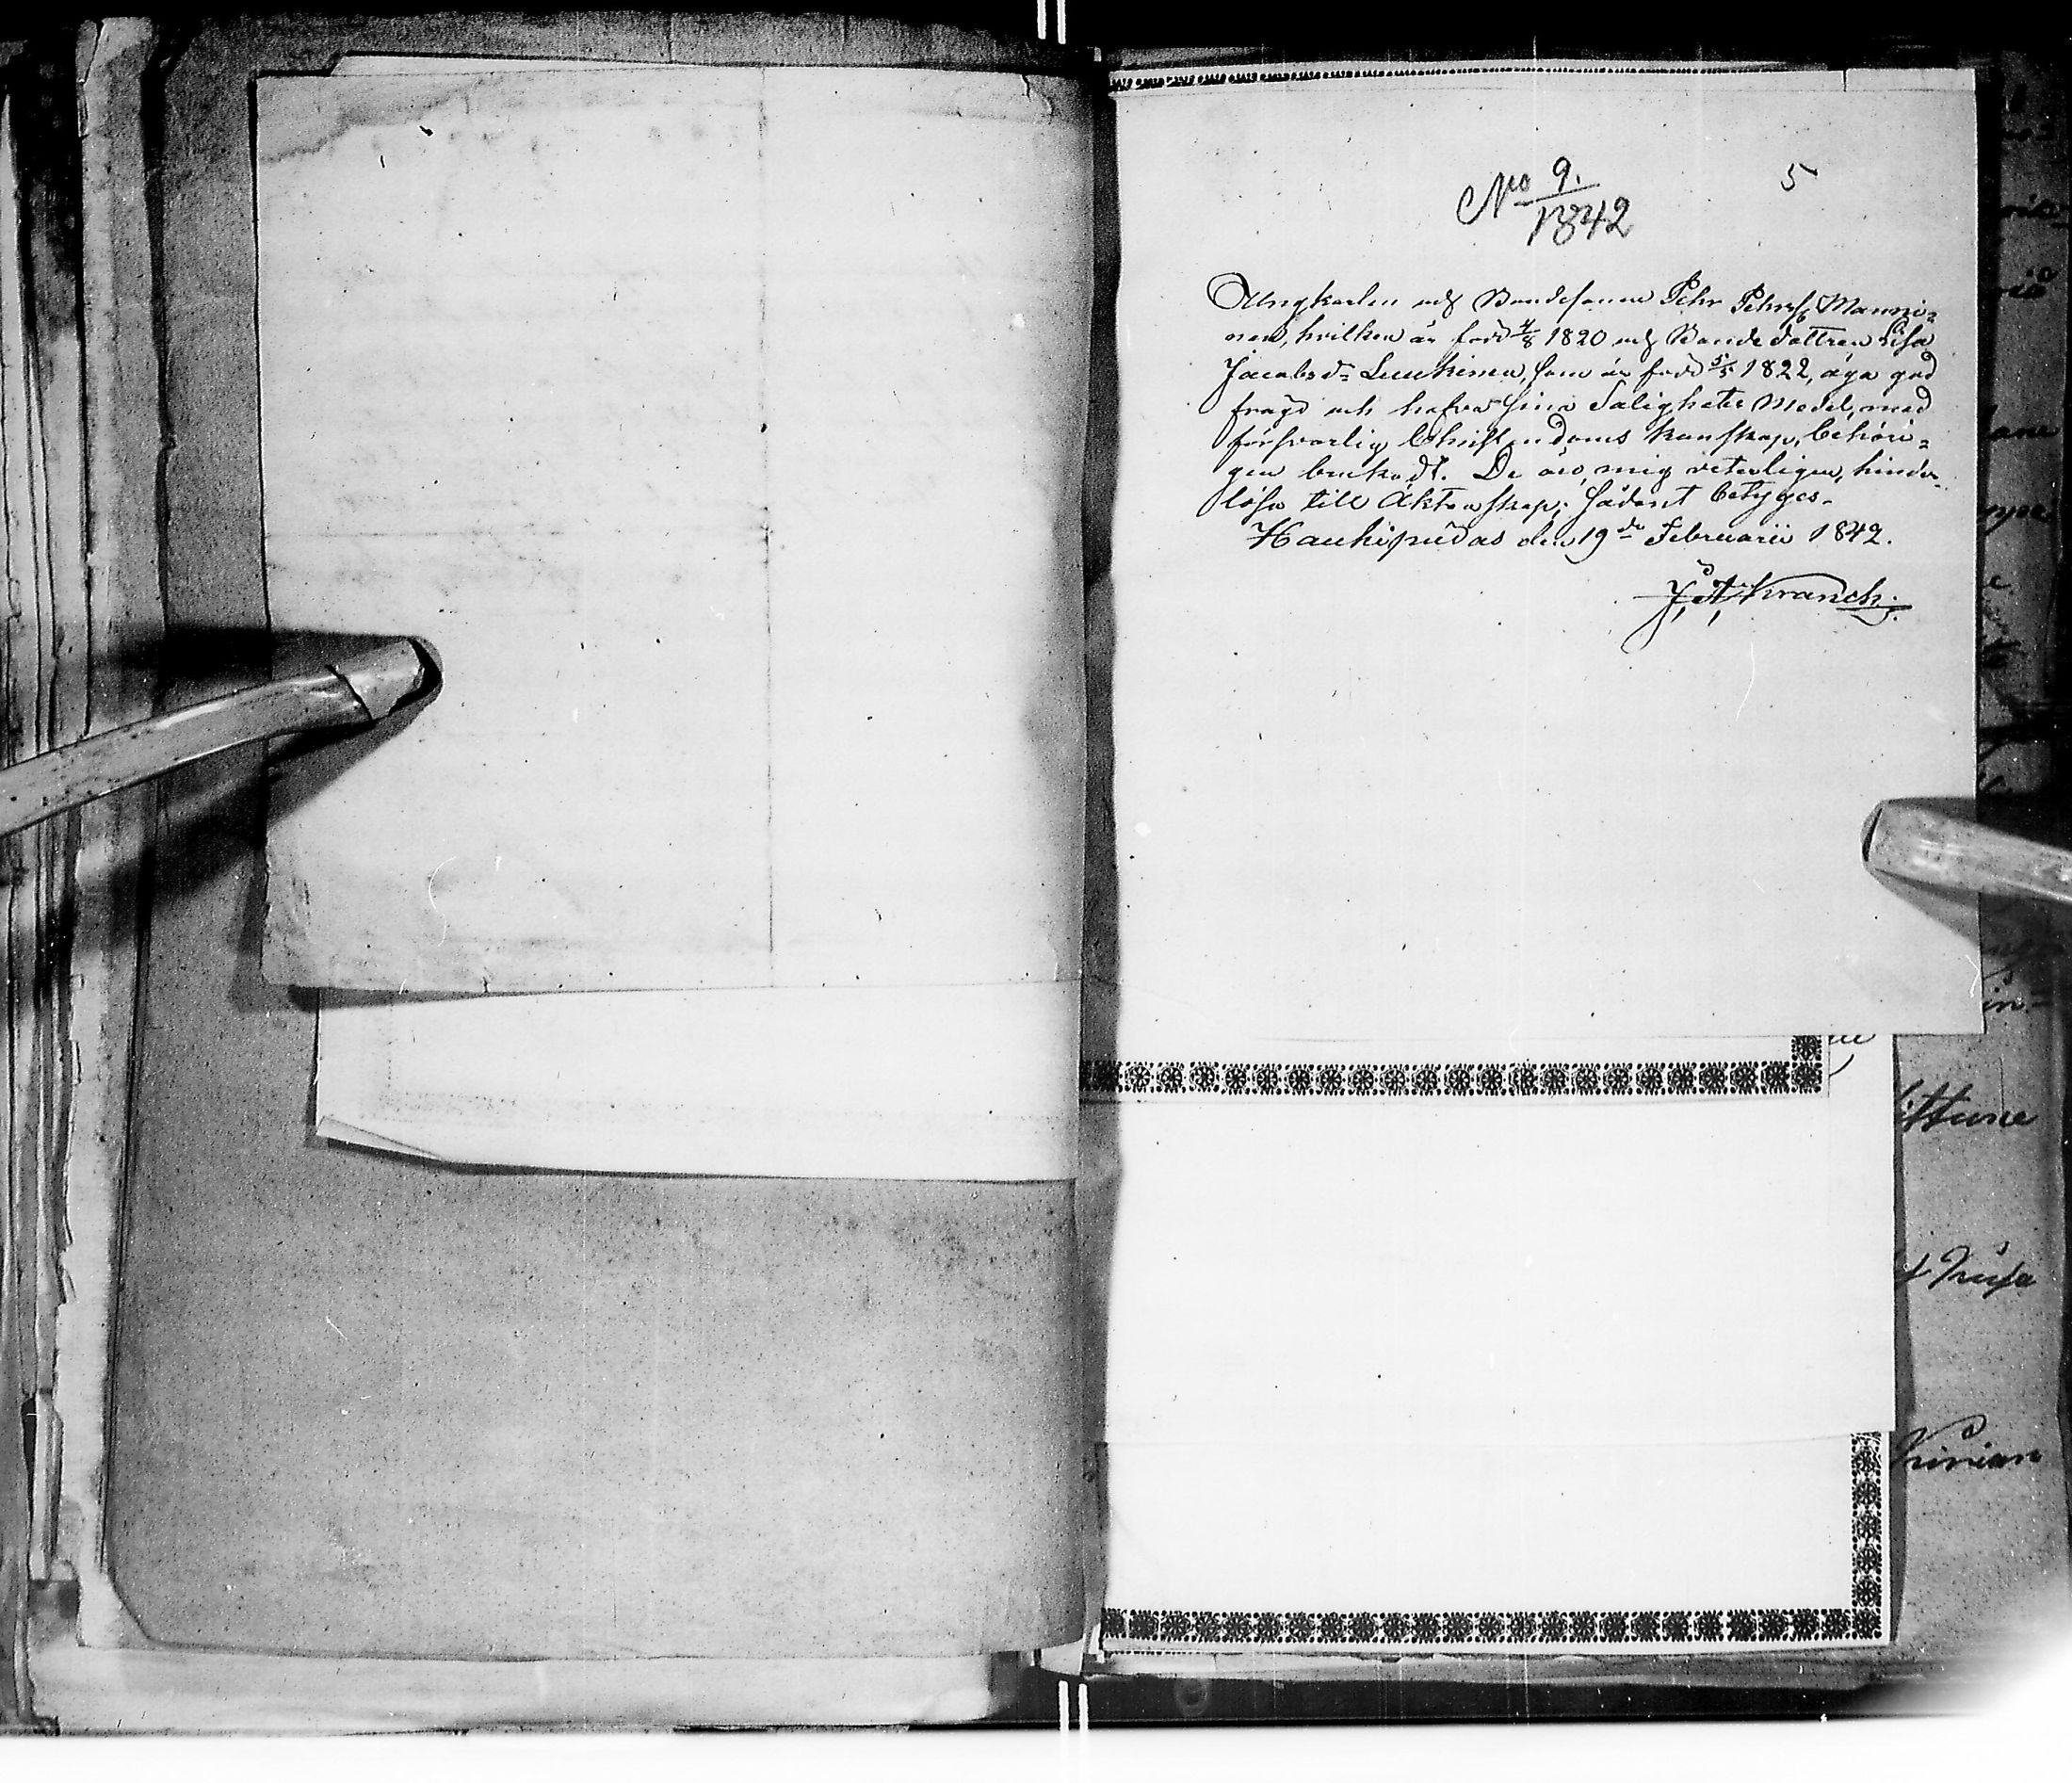 No 9./1842
5
Ungkarlen och Bondesonen Pehr Pehrss. Manni=
nen, hvilken är född 4/8 1820 och Bondedottren Lisa
Jacobsd= Luukinen, som är född 5/5 1822, äga god
frägd och hafva sina Salighets Medel, med
försvarlig Christendoms kunskap, behöri=
gen brukadt. De äro, mig veterligen, hinder
lösa till Äktenskap; sådant betyges.
Haukipudas den 19de Februarii 1842.
J. A. Kranck.
ittune
Kinian